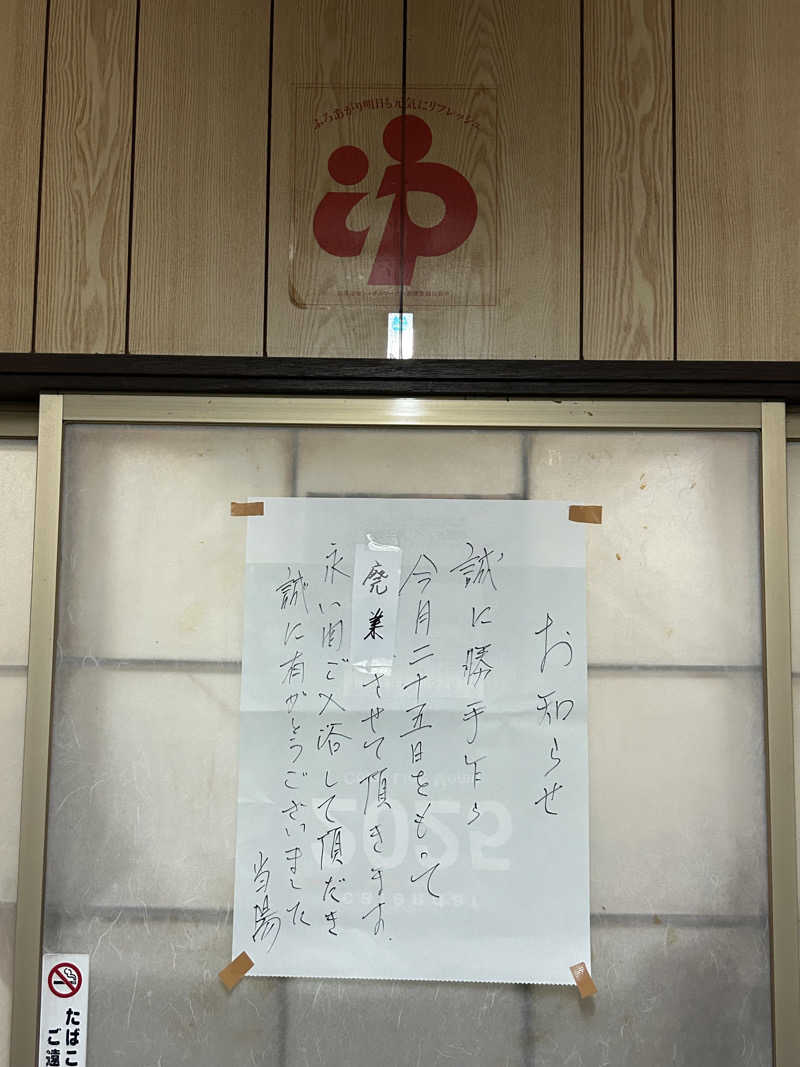 ふろあがり明日も元気にリフレッシュ
お知らせ
誠に勝手乍ら
今月二十五日をもって
廃業させて頂きます.
永い間ご入浴して頂だき
誠に有がとうございました
当湯
2025
calendar
たばこ
ご遠